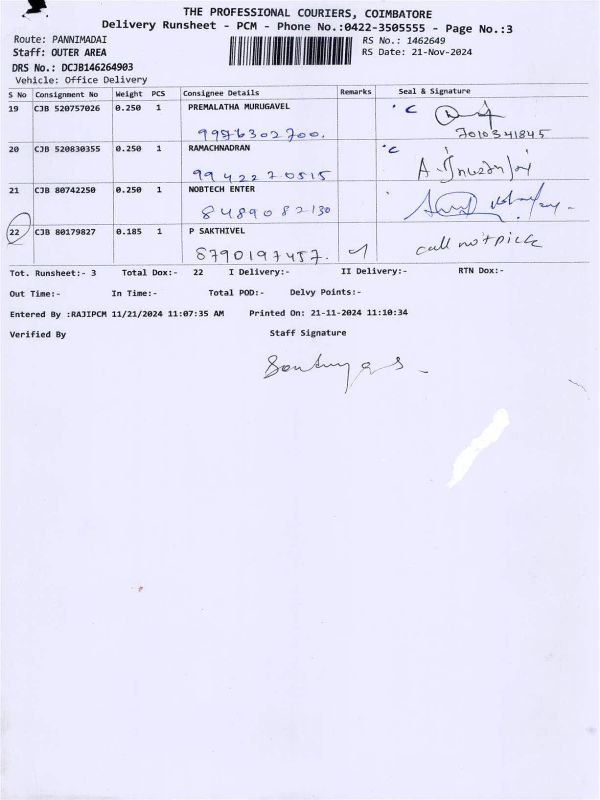 THE PROFESSIONAL COURIERS, COIMBATORE
Delivery Runsheet - PCM - Phone No.:0422-3505555 - Page No.:3
Route: PANNIMADAI
RS No.: 1462649
Staff: OUTER AREA
RS Date: 21-Nov-2024
DRS No.: DCJB146264903
Vehicle: Office Delivery
S No Consignment No Weight PCS Consignee Details Remarks Seal & Signature
19 CJB 520757026 0.250 1 PREMALATHA MURUGAVEL C
9976302700. 7010341845
20 CJB 520830355 0.250 1 RAMACHNADRAN C
9942270515
21 CJB 80742250 0.250 1 NOBTECH ENTER
8489082130
22 CJB 80179827 0.185 1 P SAKTHIVEL call not pick
8790197457.
Tot. Runsheet:- 3 Total Dox:- 22 I Delivery:- II Delivery:- RTN Dox:-
Out Time:- In Time:- Total POD:- Delvy Points:-
Entered By :RAJIPCM 11/21/2024 11:07:35 AM Printed On: 21-11-2024 11:10:34
Verified By Staff Signature